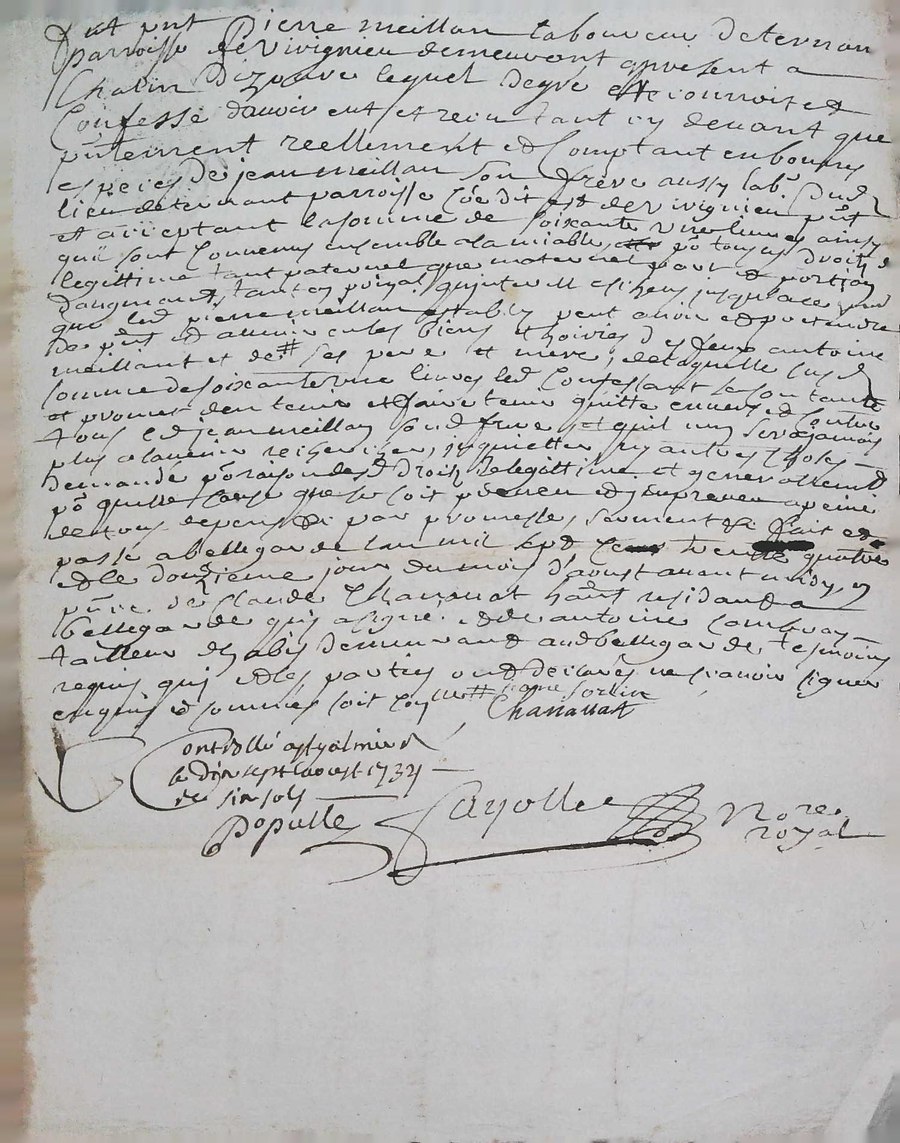 fut pnt Pierre meillan laboureur de ternan
parroisse de Vivignieu demeurant apresent a
Chalin Duzouvre lequel de gré a recounoit et
Confesse d'auoir eut et receu tant cy deuant que
pntement reellement et Comptant en bonnes
especes de jean meillan son frere aussy labr Dud
lieu de ternant parroisse Côe dit est de Vivignieu pnt
et acceptant la somme de soixante une liures ainsy
quil sont Conuenus ensemble alamiable, po tous droits de
legittime tant paternel que maternel part et portion
d'augmant, tant en principal quinterest echeus jusqua ce jour
que led pierre meillan estably peut auoir et pretendre
de pnt et aduenir en les biens et hoiries des deux antoine
meillant et de # ses pere et mere, de laquelle susd
somme de soixante une liures led Confessant se contante
et promet den tenir et faire tenir quitte enuers et Contre
tous led jean meillan sond frere, et quil nen sera jamais
plus alauenir recherché, inquietter, ny autres choses
demandé po raison desd droits de legittime et generallement
po quelle cause que ce soit preueu et jmpreueu apeine
de tous depens, par promesse, serment, fait et
passé a bellegarde lan mil sept cens trente quatre
et le douzieme jour du mois d'aoust auant midy, en
pnce de Claude Chanauat hant residand a
bellegarde qui a signé, et de antoine Combray
tailleur d'habis demeurand aud bellegarde, tesmoins
requis qui et les parties ont declarés ne scauoir signer
enquis et sommés soit # signé sorlin
Chanauat
Controllé a st galmier
le dix sept aoust 1734
rec six sols
Populle Cayolle Nore
royal